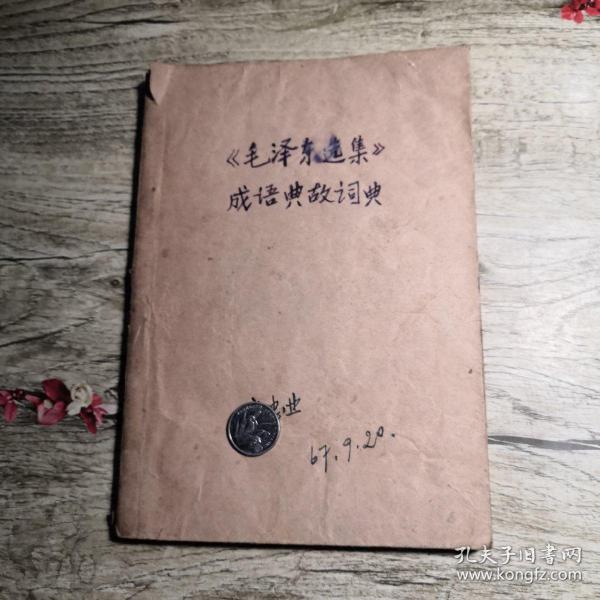 《毛泽东选集》
成语典故词典
忠业
67.9.20.
孔夫子旧书网
www.kongfz.com